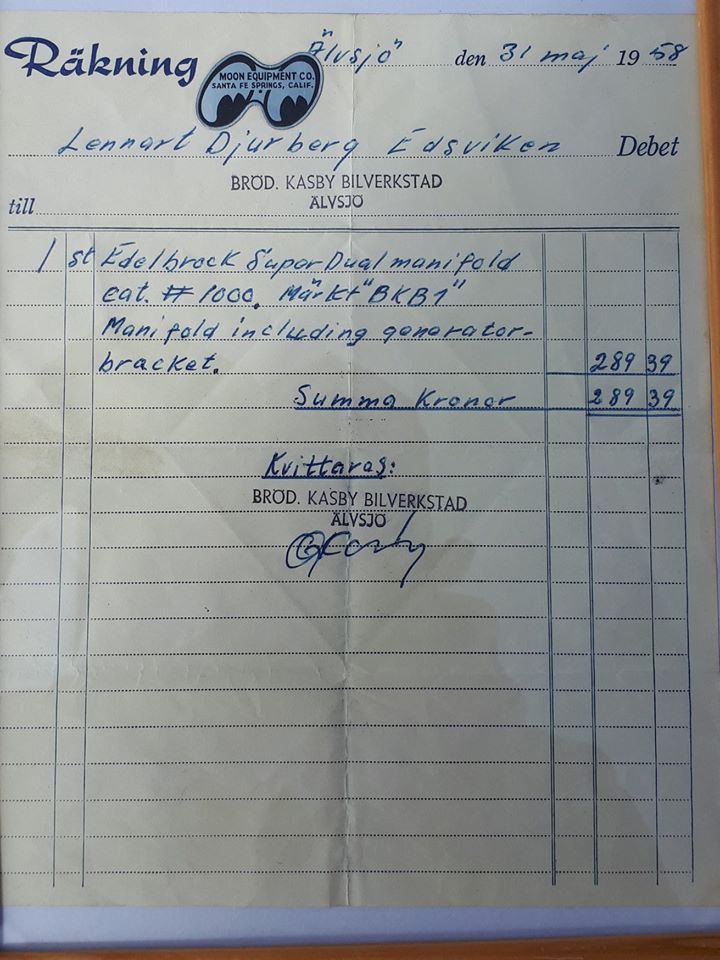 Räkning "Älvsjö" den 31 maj 1958
MOON EQUIPMENT CO.
SANTA FE SPRINGS, CALIF.
Lennart Djurberg Edsviken Debet
BRÖD. KASBY BILVERKSTAD
ÄLVSJÖ
till
1 st Edelbrock Super Dual manifold
cat. # 1000. Märkt "BKB1"
Manifold including generator-
bracket. 289 39
Summa Kronor 289 39
Kvitteras:
BRÖD. KASBY BILVERKSTAD
ÄLVSJÖ